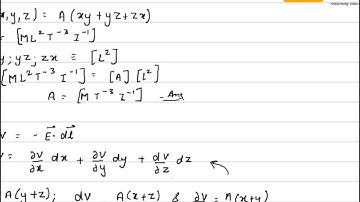 x,y,z) = A(xy+yz+zx)
= [ML²T⁻³I⁻¹]
y; yz; zx ≡ [L²]
[ML²T⁻³I⁻¹] = [A][L²]
A = [MT⁻³I⁻¹] - Ans
V = - E⃗. dl⃗
V = ∂V/∂x dx + ∂V/∂y dy + dV/dz dz
A(y+z); dV A(x+z) & ∂V = A(x+y)